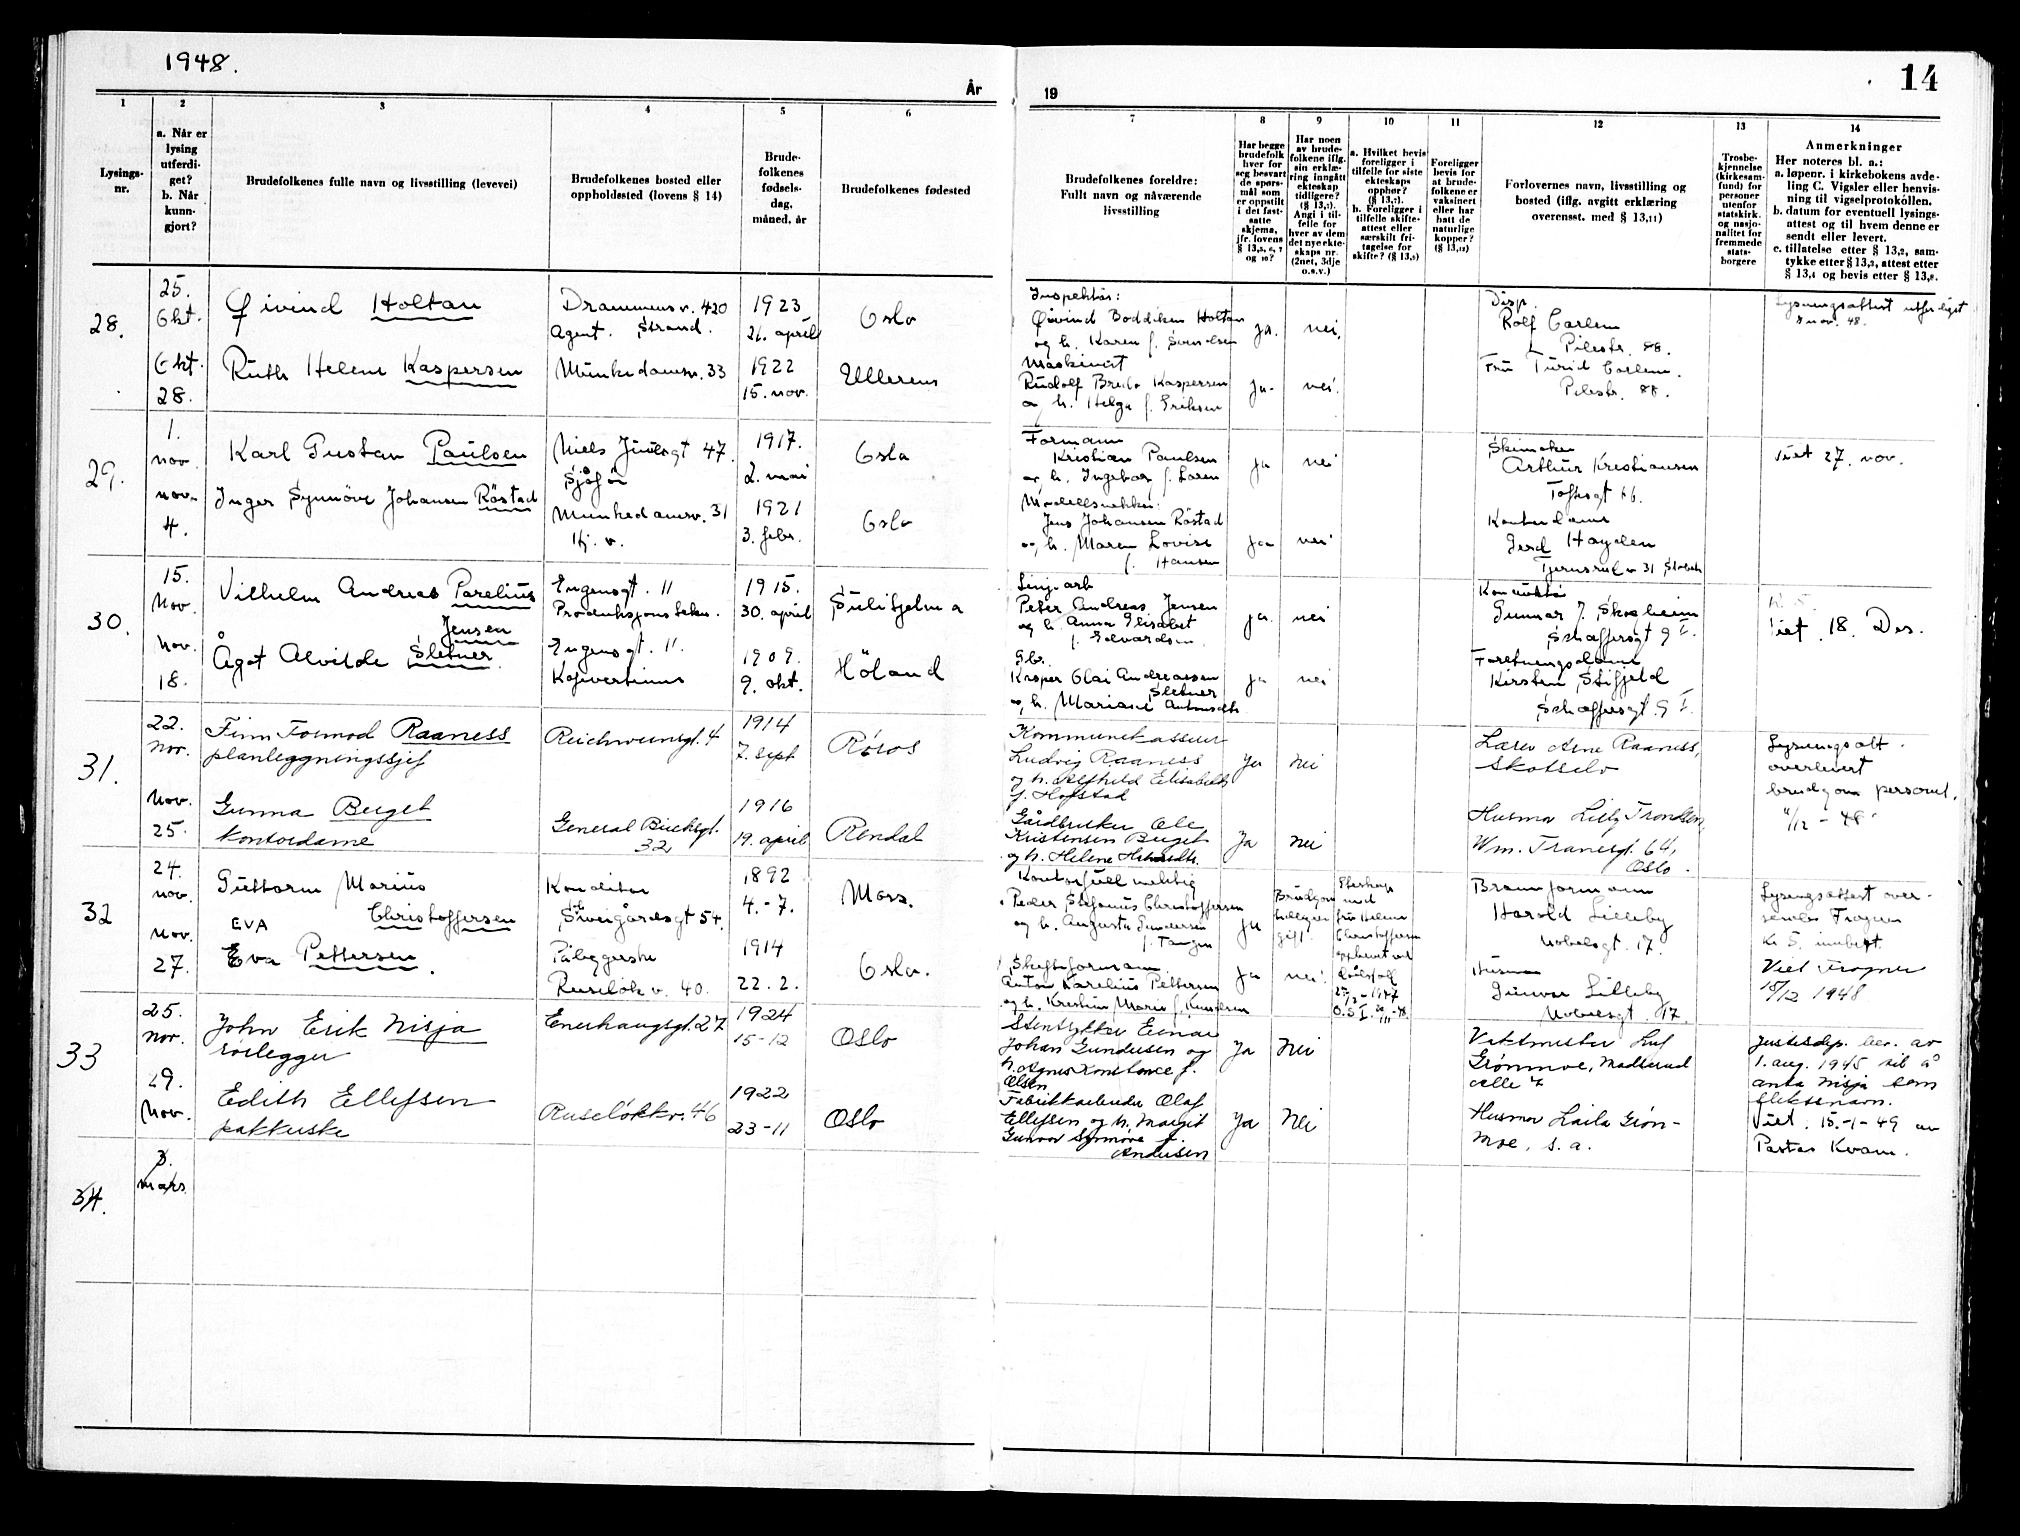 1948.
År
19
14
1
2
3
4
5
6
7
8
9
10
11
12
13
14
Lysings-
nr.
a. Når er
lysing
utferdi-
get?
b. Når
kunn-
gjort?
Brudefolkenes fulle navn og livsstilling (levevei)
Brudefolkenes bosted eller
oppholdssted (lovens § 14)
Brude-
folkenes
fødsels-
dag,
måned, år
Brudefolkenes fødested
Brudefolkenes foreldre:
Fullt navn og nåværende
livsstilling
Har begge
brudefolk
hver for
seg besvart
de spørs-
mål som
er oppstilt
i det fast-
satte
skjema,
jfr. lovens
§ 13,5, 6, 7
og 10?
Har noen
av brude-
folkene iflg.
sin erklæ-
ring inngått
ekteskap
tidligere?
(§ 13,7).
Angi i til-
felle for
hver av dem
det nye ekte-
skaps nr.
(2net, 3dje
o.s.v.)
a. Hvilket bevis
foreligger i
tilfelle for siste
ekteskaps
opphør?
(§ 13,7).
b. Foreligger i
tilfelle skifte-
attest eller
særskilt fri-
tagelse for
skifte? (§ 13,8)
Foreligger
bevis for
at brude-
folkene er
vaksinert
eller har
hatt de
naturlige
kopper?
(§ 13,12)
Forlovernes navn, livsstilling og
bosted (iflg. avgitt erklæring
overensst. med § 13,11)
Trosbe-
kjennelse
(kirkesam-
fund) for
personer
utenfor
statskirk.
og nasjo-
nalitet for
fremmede
stats-
borgere
Anmerkninger
Her noteres bl. a.:
a. løpenr. i kirkebokens avde-
ling C. Vigsler eller henvis-
ning til vigselprotokollen.
b. datum for eventuell lysings-
attest og til hvem denne er
sendt eller levert.
c. tillatelse etter § 13,2, sam-
tykke etter § 13,3, attest etter
§ 13,4 og bevis etter § 13,8.
28.
25.
Okt.
Okt.
28.
Øivind Holtan
Drammensv. 420
Agent. Strand.
1923
26. april
Oslo
Inspektør:
Øivind Boddiken Holtan
og h. Karen f. Svendsen
ja.
nei.
Disp.
Rolf Carlem
Pilestr. 88.
Lysningsattest utferdiget
8 nov. 48.
Ruth Helene Kaspersen
Munkedamsv. 33
1922
15. nov.
Ullerens
Maskinist
Rudolf Bredo Kaspersen
og h. Helga f. Eriksen
ja.
nei.
Fru Turid Carlem.
Pilestr. 88.
29.
1.
nov.
nov.
4.
Karl Gustav Paulsen
Niels Juulsgt 47.
Sjåfør
1917.
2. mai
Oslo
Formann
Kristian Paulsen
og h. Ingeborg f. Loren
ja
nei
Skinnaker
Arthur Kristiansen
Toftesgt 66.
Viet 27. nov.
Inger Synnöve Johansen Röstad
Munkedamsv. 31
Hj. v.
1921
3. febr.
Oslo
Modellsnekker:
Jens Johansen Röstad
og h. Maren Lovise
f. Hansen
ja
nei
Kontordame
Gerd Hayden
Tjernsrud v 31 Stabekk
30.
15.
Nov.
nov.
18.
Vilhelm Andreas Parelius
Jensen
Engensgt. 11
Produksjonstekn.
1915.
30. april
Sulitjelma
Linj.arb
Peter Andreas Jensen
og h. Anna Elisabet
f. Edvardsen
ja
nei
Konduktør
Gunnar J. Skosheim
Schæffersgt 9 I.
K 5.
Viet 18. Des.
Ågot Alvilde Sletner
Engensgt. 11.
Kasserinne
1909.
9. okt.
Höland
Gbr.
Kasper Olai Andreassen
Sletner
og h. Mariane Antonsdtr
ja
nei
Forretningsdame
Kirsten Stifjeld
Schæffersgt. 9 I.
31.
22.
nov.
Nov.
25.
Finn Tormod Raaness
planleggningssjef
Reichweinsgt. 4
1914
7. sept
Røros
Kommunekasserer
Ludvig Raaness
og h. Alfhild Elisabeth
f. Hofstad
Ja
Nei
Lærer Arne Raaness,
Skotselv
Lysningsatt.
overlevert
brudgom personl.
4/12 - 48
Gunna Berget
kontordame
General Birchsgt.
32
1916
19. april
Rendal
Gårdbruker Ole
Kristensen Berget
og h. Helene
Ja
Nei
Husmor Lilly Trondsen,
Wm. Tranesgt. 64,
Oslo.
32
24.
nov.
Nov.
27.
Guttorm Marius
Christoffersen
Konditor
Sweigårdsgt 54.
1892
4.-7.
Moss.
Kontorfullmektig
Peder Stefanus Christoffersen
og h. Augusta Gundersen
f. Tangen
ja
Brudgom
tidligere
gift.
Ekteskap
med
fru Helene
Christoffersen
opphevet ved
dødsfall
25/3 - 1947
Bramformann
Harold Lilleby
Nobelsgt. 17.
Lysningsattest over-
sendes Frogner
Kl 5. innbert.
Viet Frogner
18/12 1948.
EVA
Eva Pettersen.
Påleggerske
Ruseløk v. 40.
1914
22. 2.
Oslo.
Skiftsformann
Anton Karelius Pettersen
og h. Kristine Marie f. Knudsen
Ja
nei
Husmor
Gunvor Lilleby
Nobelsgt. 17.
33
25.
nov.
29.
Nov.
John Erik Nisja
rørlegger
Enerhaugsgt. 27
1924
15-12
Oslo
Stentrykker Einar
Johan Gundersen og
h. Agnes Konstance f.
Olsen
Ja
Nei
Vaktmester Leif
Grønmoe, Madserud
Alle 4
Justisdep. bev. av
1. aug. 1945 til å
anta Nisja som
slektsnavn.
Viet. 15.-1-49 av
Pastor Kvam.
Edith Ellefsen
pakkerske
Ruseløkkv. 46
1922
23-11
Oslo
Fabrikkarbeider Olaf
Ellefsen og h. Margit
Gunvor Synnøve f.
Andersen
Ja
Nei
Husmor Laila Grøn-
moe, s. a.
34.
3.
mars